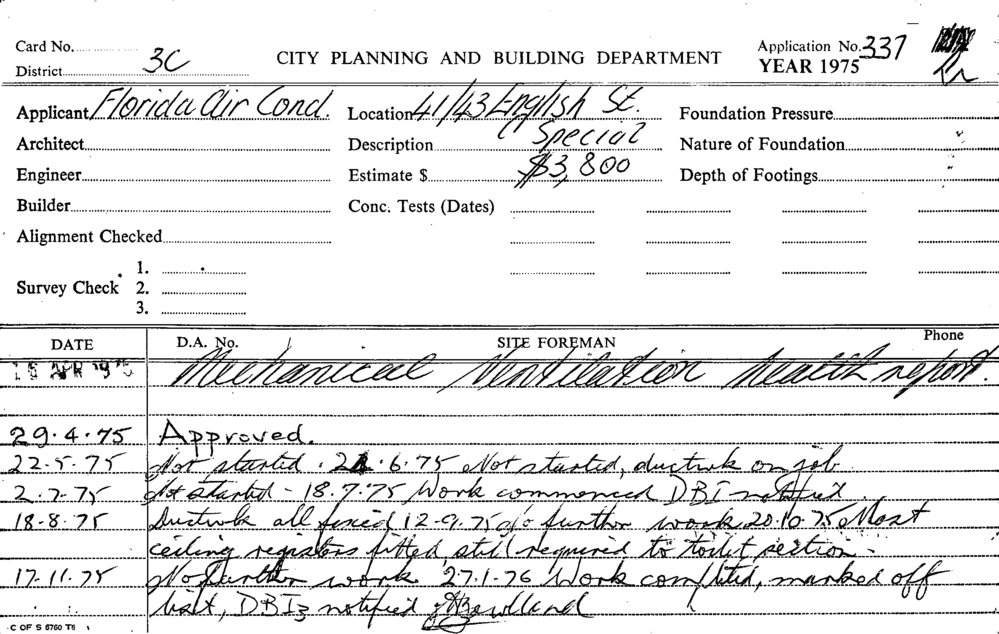 Card No. 3C CITY PLANNING AND BUILDING DEPARTMENT Application No. 337
District YEAR 1975
Applicant Florida Air Cond. Location 41/43 English St. Foundation Pressure
Architect Description Special Nature of Foundation
Engineer Estimate $ $3,800 Depth of Footings
Builder Conc. Tests (Dates)
Alignment Checked
1.
Survey Check 2.
3.
DATE D.A. No. SITE FOREMAN Phone
APR Mechanical Ventilation health report.
29.4.75 Approved.
22.5.75 Not started . 6.75 Not started, ductwk on job
2.7.75 Not started - 18.7.75 Work commenced DBI notified
18.8.75 Ductwk all fixed 12-9.75 No further work 20.10.75 Most
ceiling registers fitted, still required to toilet section -
17.11.75 No further work. 27.1.76 Work completed, marked off
DBI3 notified
C OF S 6760 T6